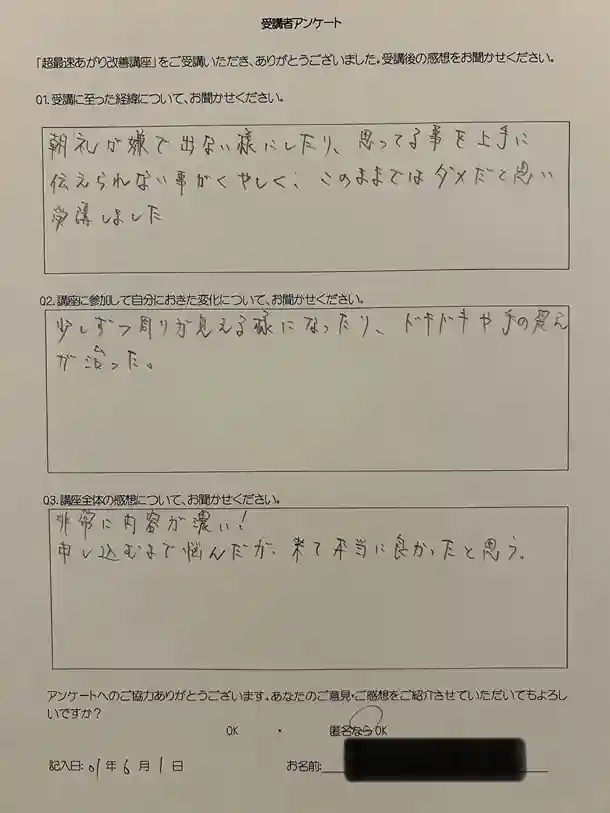 受講者アンケート
「超最速あがり改善講座」をご受講いただき、ありがとうございました。受講後の感想をお聞かせください。
Q1.受講に至った経緯について、お聞かせください。
朝礼が嫌で出ない様にしたり、思ってる事を上手に
伝えられない事がくやしく、このままではダメだと思い
受講しました
Q2.講座に参加して自分におきた変化について、お聞かせください。
少しずつ周りが見える様になったり、ドキドキや手の震え
が治った。
Q3.講座全体の感想について、お聞かせください。
非常に内容が濃い!
申し込むまで悩んだが、来て本当に良かったと思う。
アンケートへのご協力ありがとうございます。あなたのご意見・ご感想をご紹介させていただいてもよろし
いですか?
OK ・ 匿名ならOK
記入日: 01年 6月 1日 お名前: